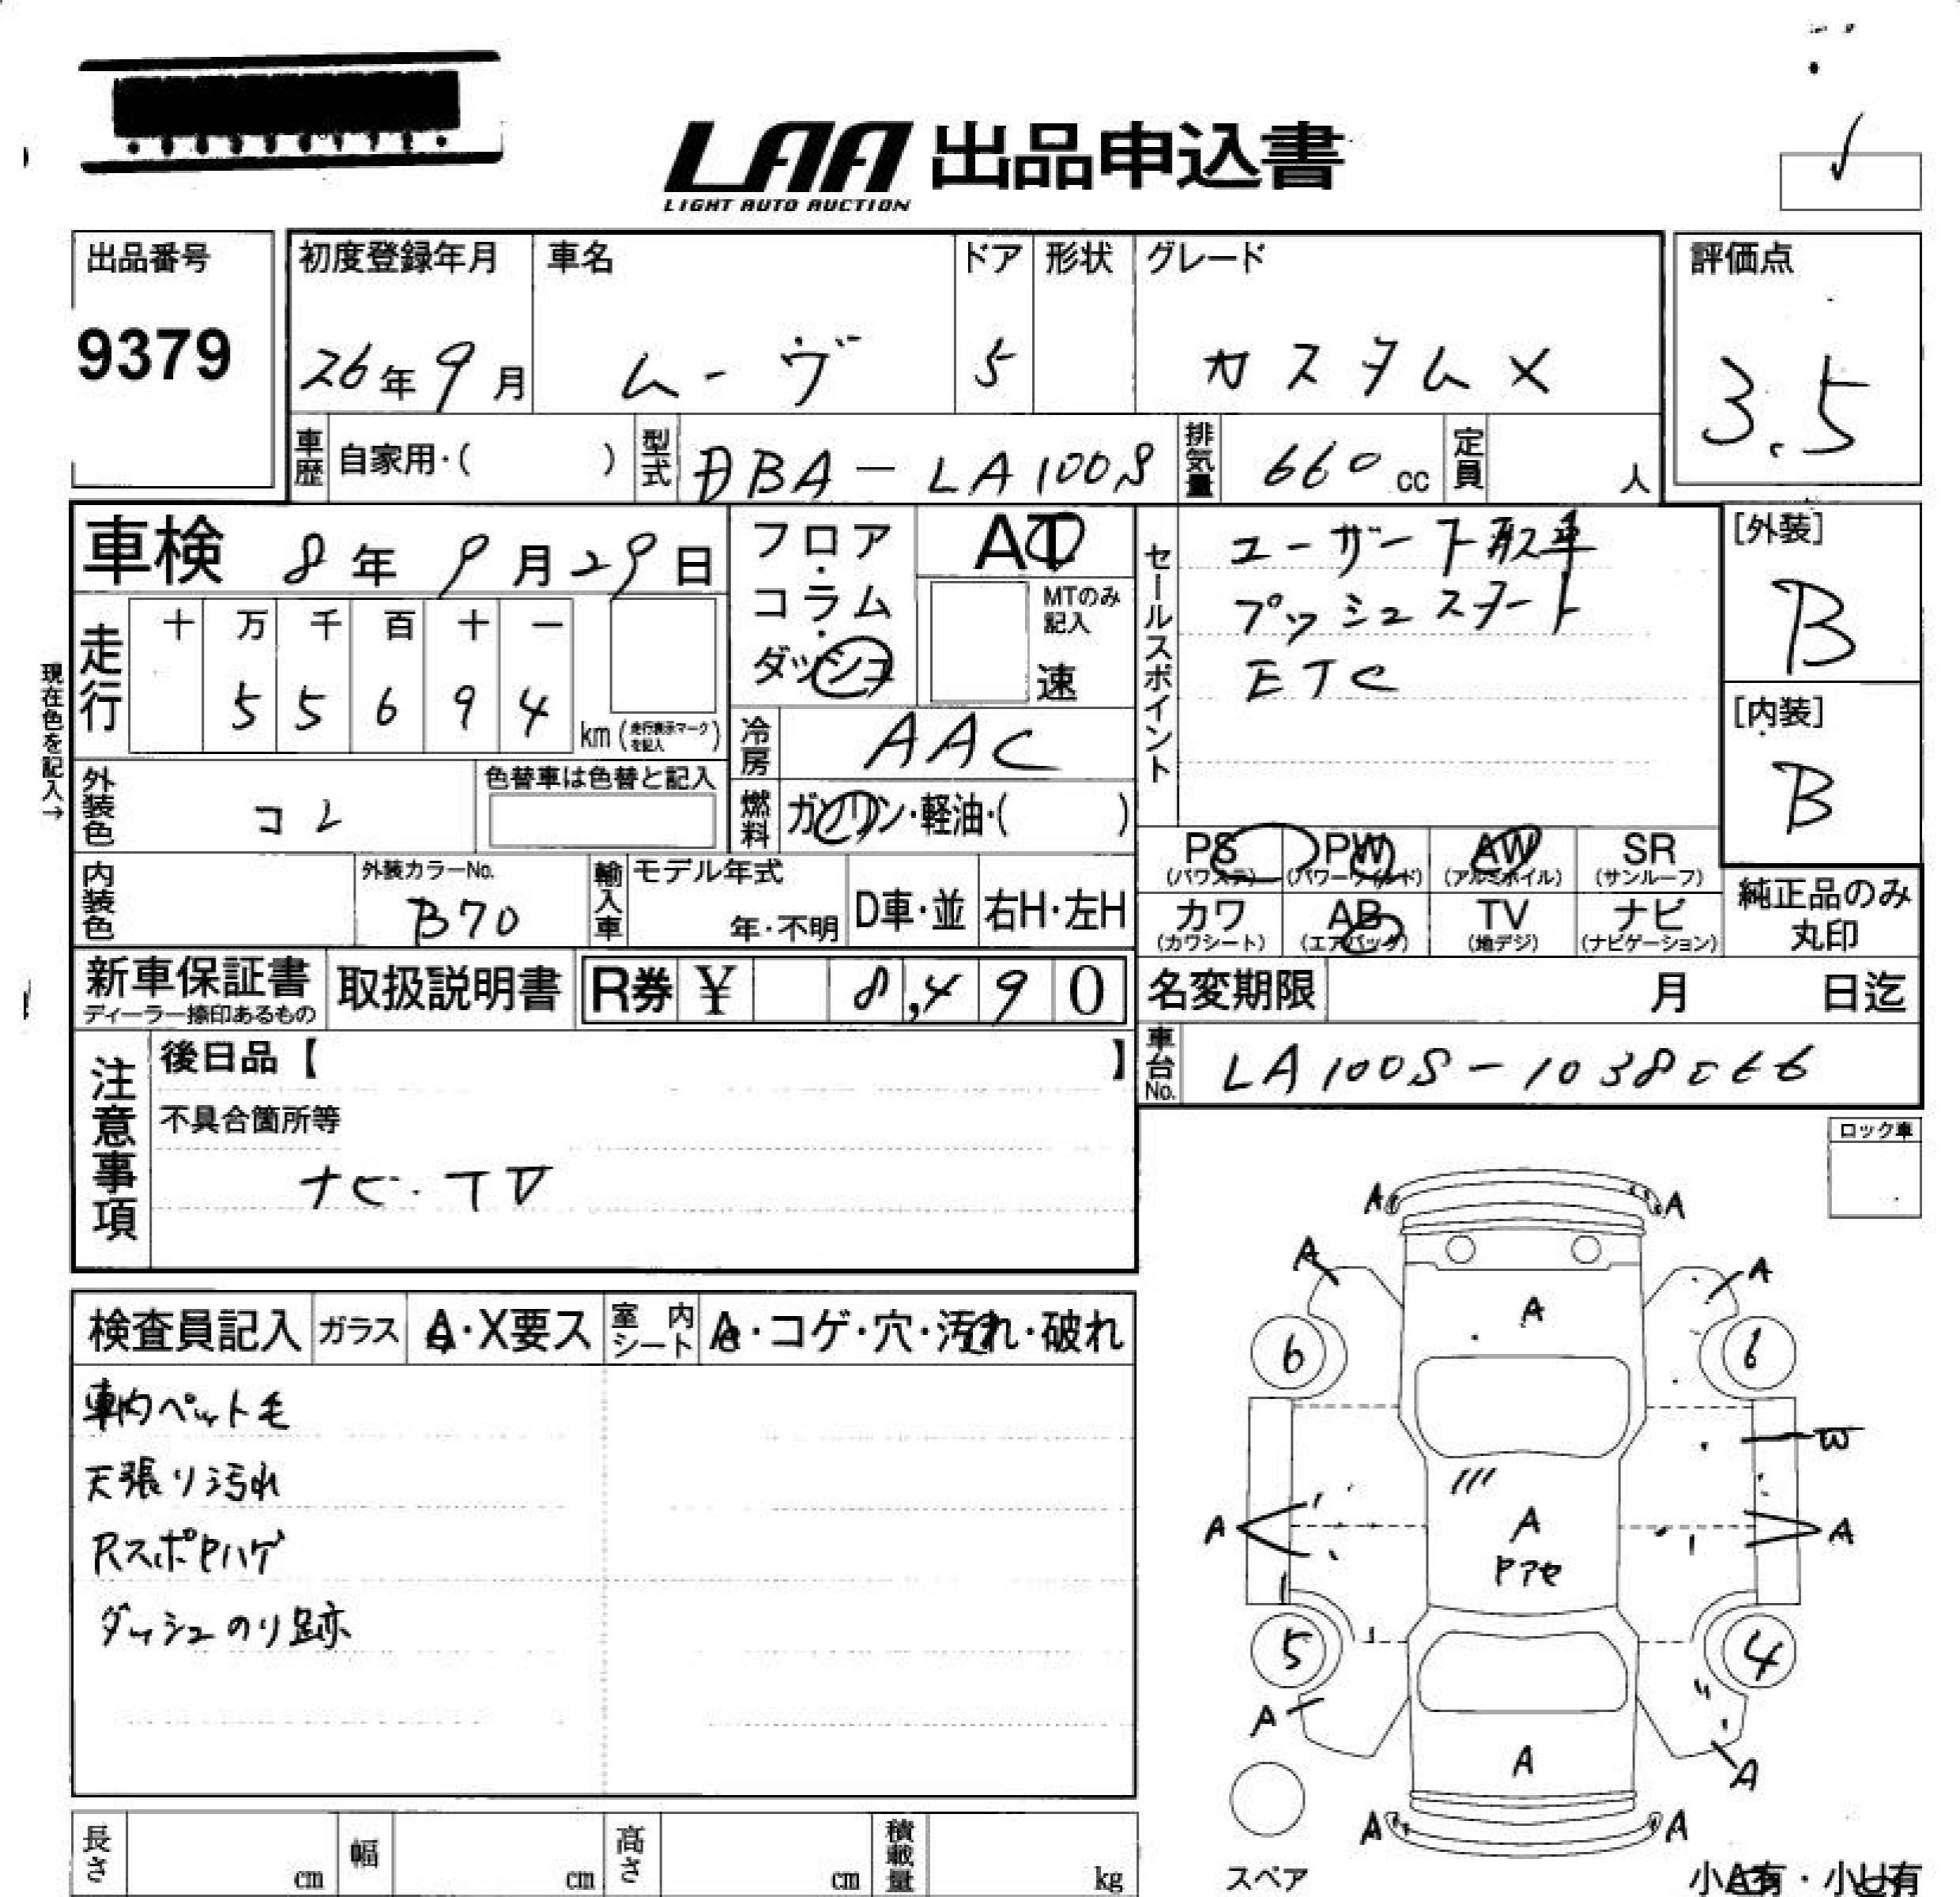 LAA 出品申込書
LIGHT AUTO AUCTION
出品番号
9379
初度登録年月
26年9月
車名
ムーヴ
ドア
5
形状
グレード
カスタムX
評価点
3.5
車歴 自家用・( )
型式 DBA-LA100S
排気量 660 cc
定員 人
車検 8年9月29日
現在色を記入→
走行
十 万 千 百 十 一
5 5 6 9 4
km (走行表示マークを記入)
フロア・コラム・ダッシュ
AT
MTのみ記入
速
冷房 AAC
燃料 ガソリン・軽油・( )
セールスポイント
ユーザー下取車
プッシュスタート
ETC
[外装]
B
[内装]
B
外装色 コン
色替車は色替と記入
内装色
外装カラーNo.
B70
輸入車
モデル年式
年・不明
D車・並
右H・左H
PS PW AW SR
(パワステ) (パワーウィンド) (アルミホイル) (サンルーフ)
カワ AB TV ナビ
(カワシート) (エアバッグ) (地デジ) (ナビゲーション)
純正品のみ
丸印
新車保証書
ディーラー捺印あるもの
取扱説明書
R券 ¥ 8,490
名変期限 月 日迄
車台No. LA100S-1038
注意事項
後日品【 】
不具合箇所等
ナビ・TV
ロック車
検査員記入
ガラス A・X要ス
室内シート ・コゲ・穴・汚れ・破れ
車内ペット毛
天張り汚れ
RスポPハゲ
ダッシュのり跡
A A
A A
A
6 6
W
A A A
Pアセ
5 4
A
A A
A A
スペア
小A有・小U有
長さ cm
幅 cm
高さ cm
積載量 kg